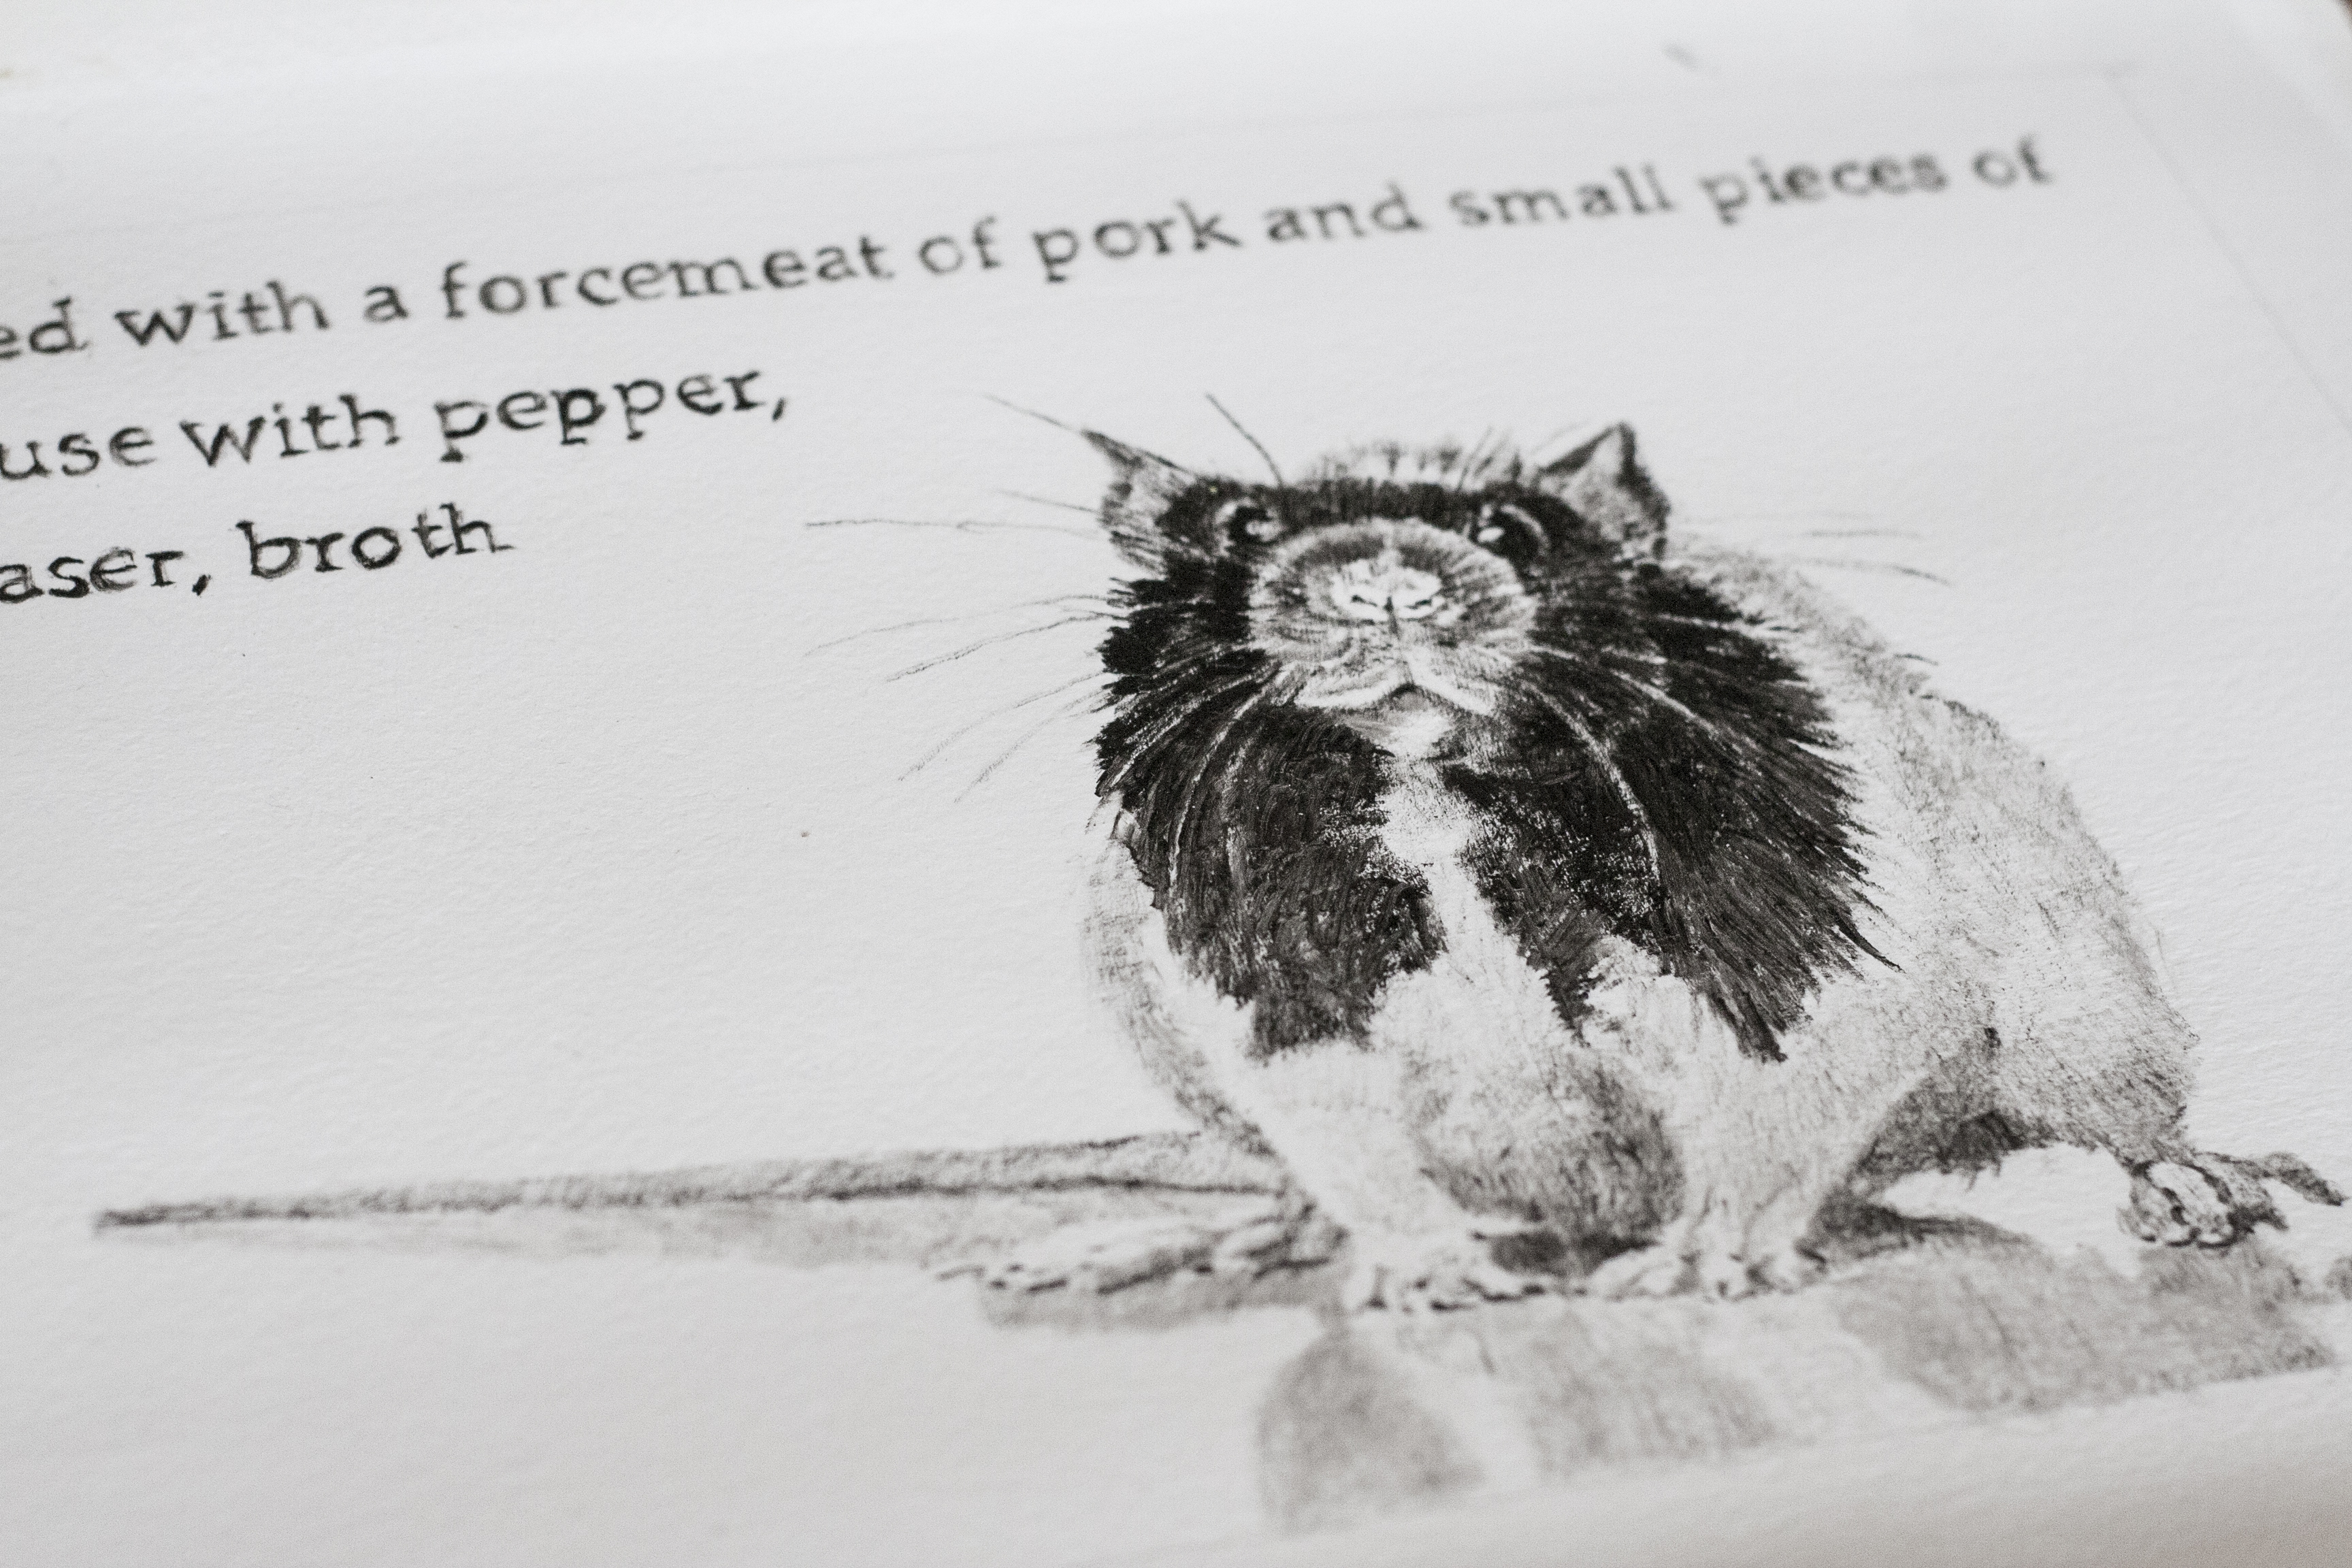 ed with a forcemeat of pork and small pieces of
use with pepper,
aser, broth